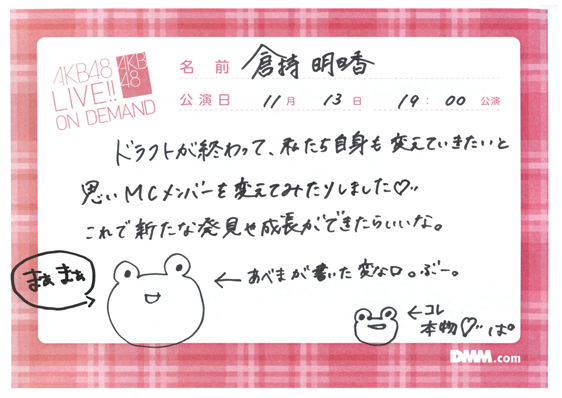 AKB48
LIVE!!
ON DEMAND
AKB
48
名前 倉持明日香
公演日 11月 13日 19:00 公演
ドラフトが終わって、私たち自身も変えていきたいと
思いMCメンバーを変えてみたりしました♡
これで新たな発見や成長ができたらいいな。
まぁまぁ
←あべまが書いた変な口。ぶー。
←コレ
本物♡ ぱ。
DMM.com